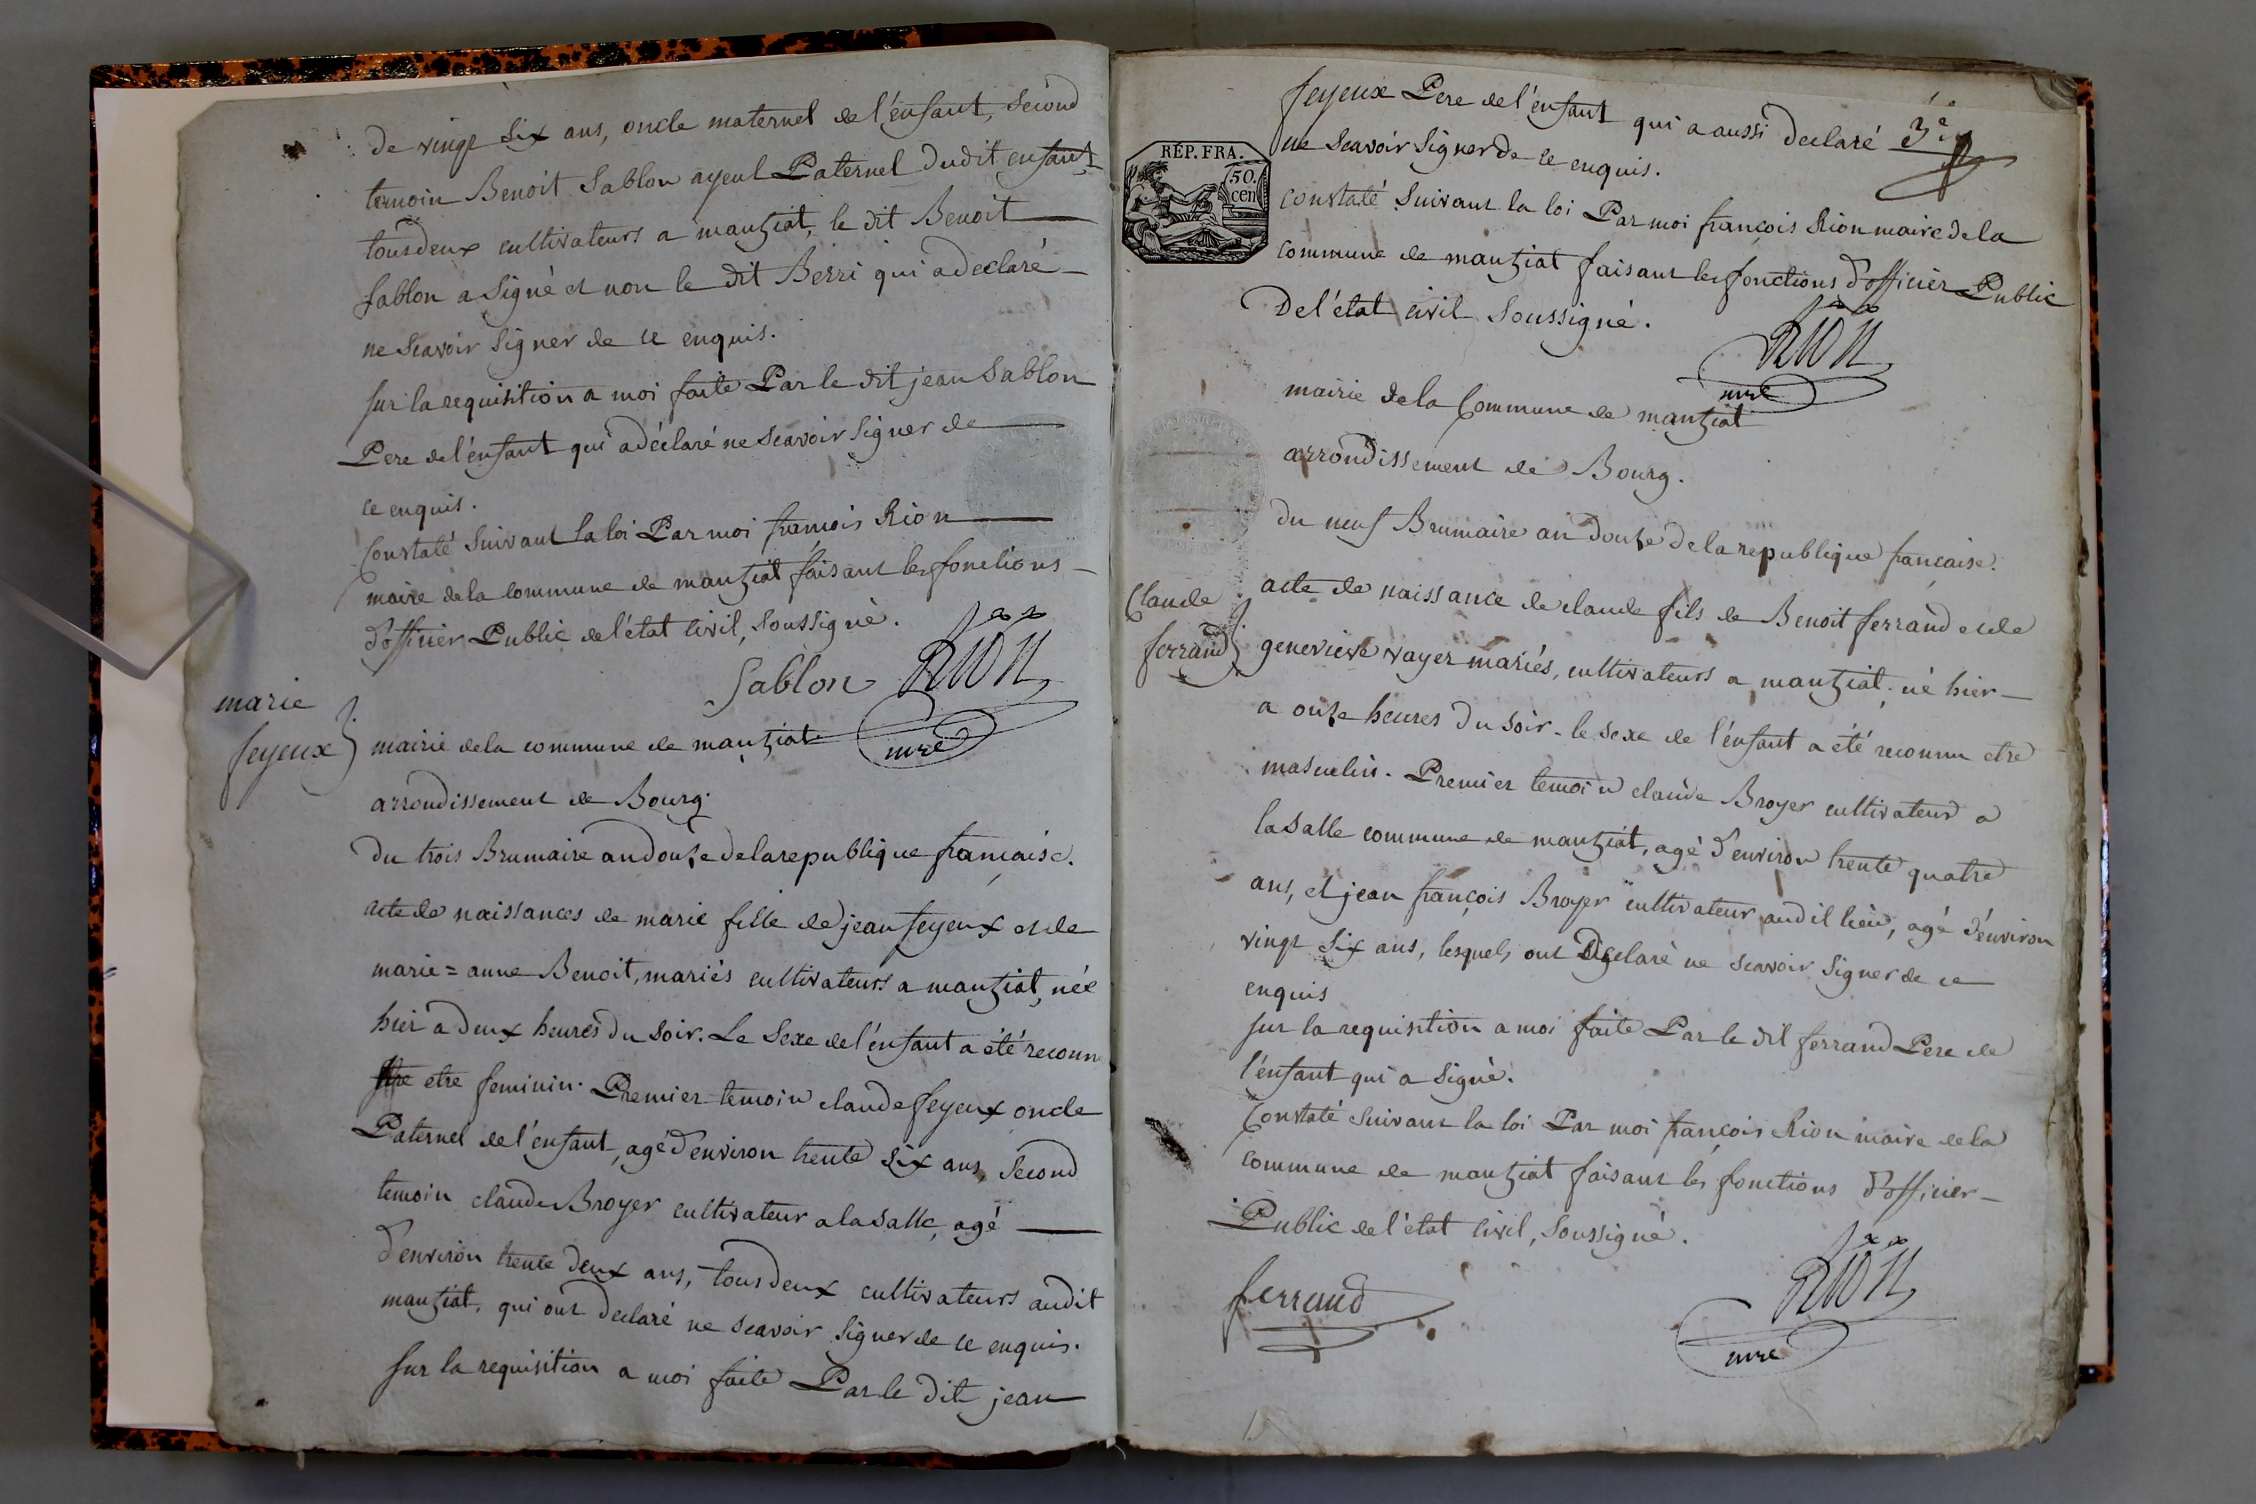 de vingt six ans, oncle maternel de l'enfant, second
temoin Benoit Sablon ayeul Paternel dudit enfant
tous deux cultivateurs a manziat, le dit Benoit
Sablon a signé et non le dit Berri qui a declaré
ne scavoir signer de ce enquis.
sur la requisition a moi faite Par le dit jean Sablon
Pere de l'enfant qui a déclaré ne scavoir signer de
ce enquis.
Constaté suivant la loi Par moi françois Rion
maire de la commune de manziat faisant les fonctions
d'officier Public de l'état civil, soussigné.
Sablon RION
mre
marie
feyeux
mairie de la commune de manziat
arrondissement de Bourg.
du trois Brumaire an douze de la republique française.
acte de naissances de marie fille de jean feyeux et de
marie = anne Benoit, mariés cultivateurs a manziat, née
hier a deux heures du soir. Le Sexe de l'énfant a été reconn
etre feminin. Premier temoin claude feyeux oncle
Paternel de l'énfant, agé d'environ trente six ans, Second
temoin claude Broyer cultivateur a la salle, agé
d'environ trente deux ans, tous deux cultivateurs audit
manziat, qui ont declaré ne scavoir signer de ce enquis.
sur la requisition a moi faite Par le dit jean
feyeux Pere de l'énfant qui a aussi declaré 3e
ne scavoir signer de ce enquis.
RÉP. FRA.
50.
cen
constaté suivant la loi Par moi françois Rion maire de la
commune de manziat faisant les fonctions d'officier Public
De l'état civil soussigné.
RION
mre
mairie de la Commune de manziat
arrondissement de Bourg.
du neuf Brumaire an douze de la republique francaise.
Claude
ferrand
acte de naissance de claude fils de Benoit ferrand et de
genevieve vayer mariés, cultivateurs a manziat, né hier
a onze heures du soir. le sexe de l'énfant a été reconnu etre
masculin. Premier temoin claude Broyer cultivateur a
la salle commune de manziat, agé d'environ trente quatre
ans, et jean françois Broyer cultivateur audit lieu, agé d'énviron
vingt six ans, lesquels ont Declaré ne scavoir signer de ce
enquis
sur la requisition a moi faite Par le dit ferrand Pere de
l'énfant qui a signé.
Constaté suivant la loi Par moi françois Rion maire de la
commune de manziat faisant les fonctions d'officier
Public de l'état civil, soussigné.
ferrand
RION
mre